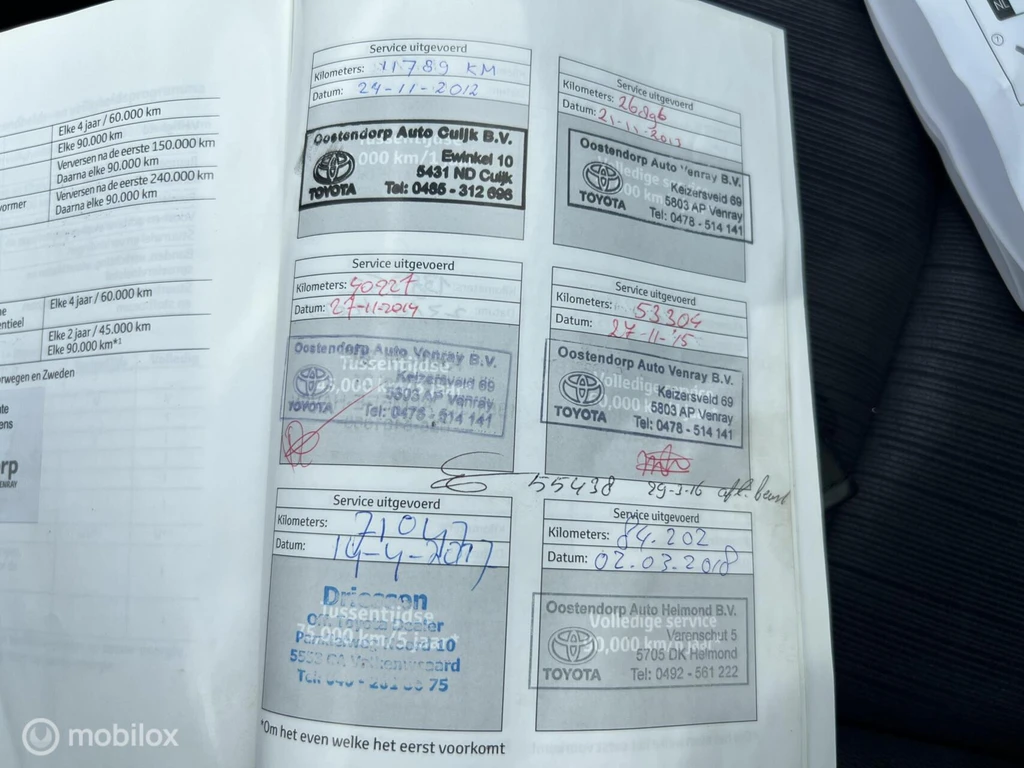 Elke 4 jaar / 60.000 km
Elke 90.000 km
Verversen na de eerste 150.000 km
Daarna elke 90.000 km
vormer
Verversen na de eerste 240.000 km
Daarna elke 90.000 km
Elke 4 jaar / 60.000 km
entieel
Elke 2 jaar / 45.000 km
Elke 90.000 km*¹
orwegen en Zweden
Service uitgevoerd
Kilometers: 11789 KM
Datum: 24-11-2012
Tussentijdse
Oostendorp Auto Cuijk B.V.
Ewinkel 10
5431 ND Cuijk
TOYOTA
Tel: 0485 - 312 696
Service uitgevoerd
Kilometers: 26896
Datum: 21-11-2013
Volledige
Oostendorp Auto Venray B.V.
Keizersveld 69
5803 AP Venray
TOYOTA
Tel: 0478 - 514 141
Service uitgevoerd
Kilometers: 40927
Datum: 27-11-2014
Tussentijdse
Oostendorp Auto Venray B.V.
Keizersveld 69
5803 AP Venray
TOYOTA
Tel: 0478 - 514 141
Service uitgevoerd
Kilometers: 53304
Datum: 27-11-'15
Volledige
Oostendorp Auto Venray B.V.
Keizersveld 69
5803 AP Venray
TOYOTA
Tel: 0478 - 514 141
55438 29-3-16 afl. beurt
Service uitgevoerd
Kilometers: 71047
Datum: 14-4-2017
Driessen
Tussentijdse
75.000 km/5 jaar*
Service uitgevoerd
Kilometers: 84.202
Datum: 02.03.2018
Oostendorp Auto Helmond B.V.
Volledige service
Varenschut 5
90,000 km/6 jaar*
5705 DK Helmond
TOYOTA
Tel: 0492 - 561 222
*Om het even welke het eerst voorkomt
NL
mobilox